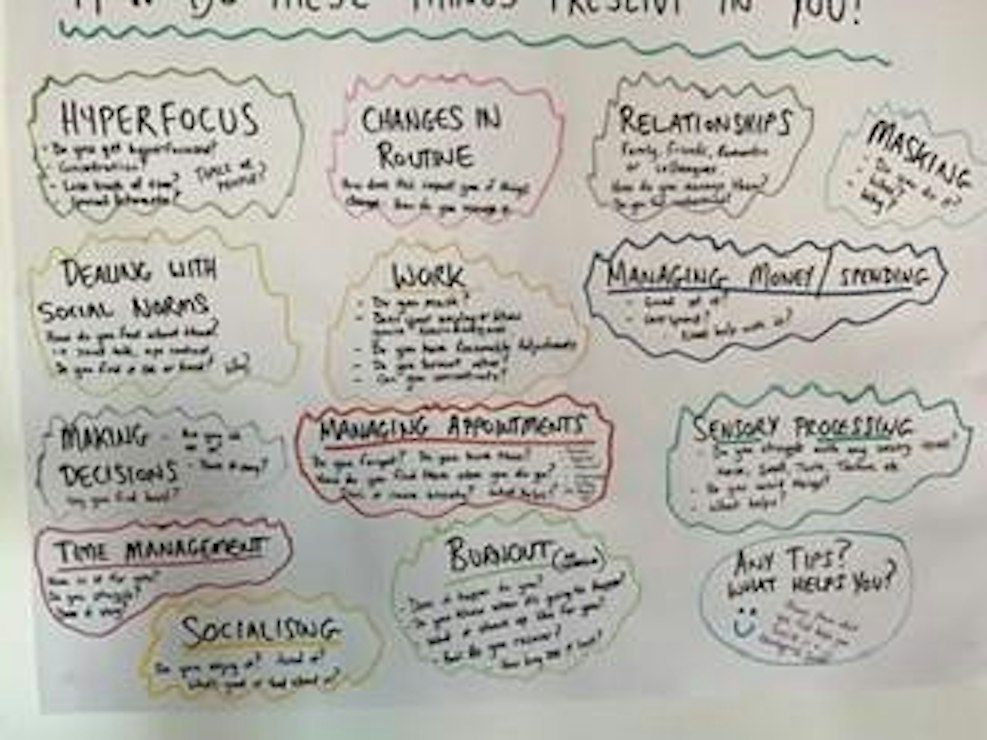 HOW DO THESE THINGS PRESENT IN YOU?
HYPERFOCUS
- Do you get hyperfocused?
Concentration?
- Lose track of time?
Special Interests?
CHANGES IN
ROUTINE
How does this impact you if things
change. How do you manage it
RELATIONSHIPS
Family, Friends, Romantic
or Colleagues
How do you manage them?
Do you
MASKING
- Do you do it?
- What?
- Why?
DEALING WITH
SOCIAL NORMS
How do you feel about them?
i.e small talk, eye contact
Do you find it ok or hard? Why?
WORK
- Do you mask?
- Does your employer
- Do you have Reasonable Adjustments
- Do you
- Can you concentrate?
MANAGING MONEY/SPENDING
- Good at it?
- Overspend?
- Need help with it?
MAKING
DECISIONS
- Are you ok
Do you find hard?
MANAGING APPOINTMENTS
Do you forget? Do you book them?
How do you find them when you do go?
cause anxiety? What helps?
SENSORY PROCESSING
- Do you struggle with any sensory
Noise, Smell, Taste, Texture etc
- Do you avoid things?
- What helps?
TIME MANAGEMENT
How is it for you?
Do you struggle?
Does it vary?
BURNOUT
- Does it happen to you?
- Do you know when it's going to happen?
What does it show up like for you?
- How do you recover?
How long does it last?
ANY TIPS?
WHAT HELPS YOU?
SOCIALISING
Do you enjoy it? Avoid it?
What's good or bad about it?